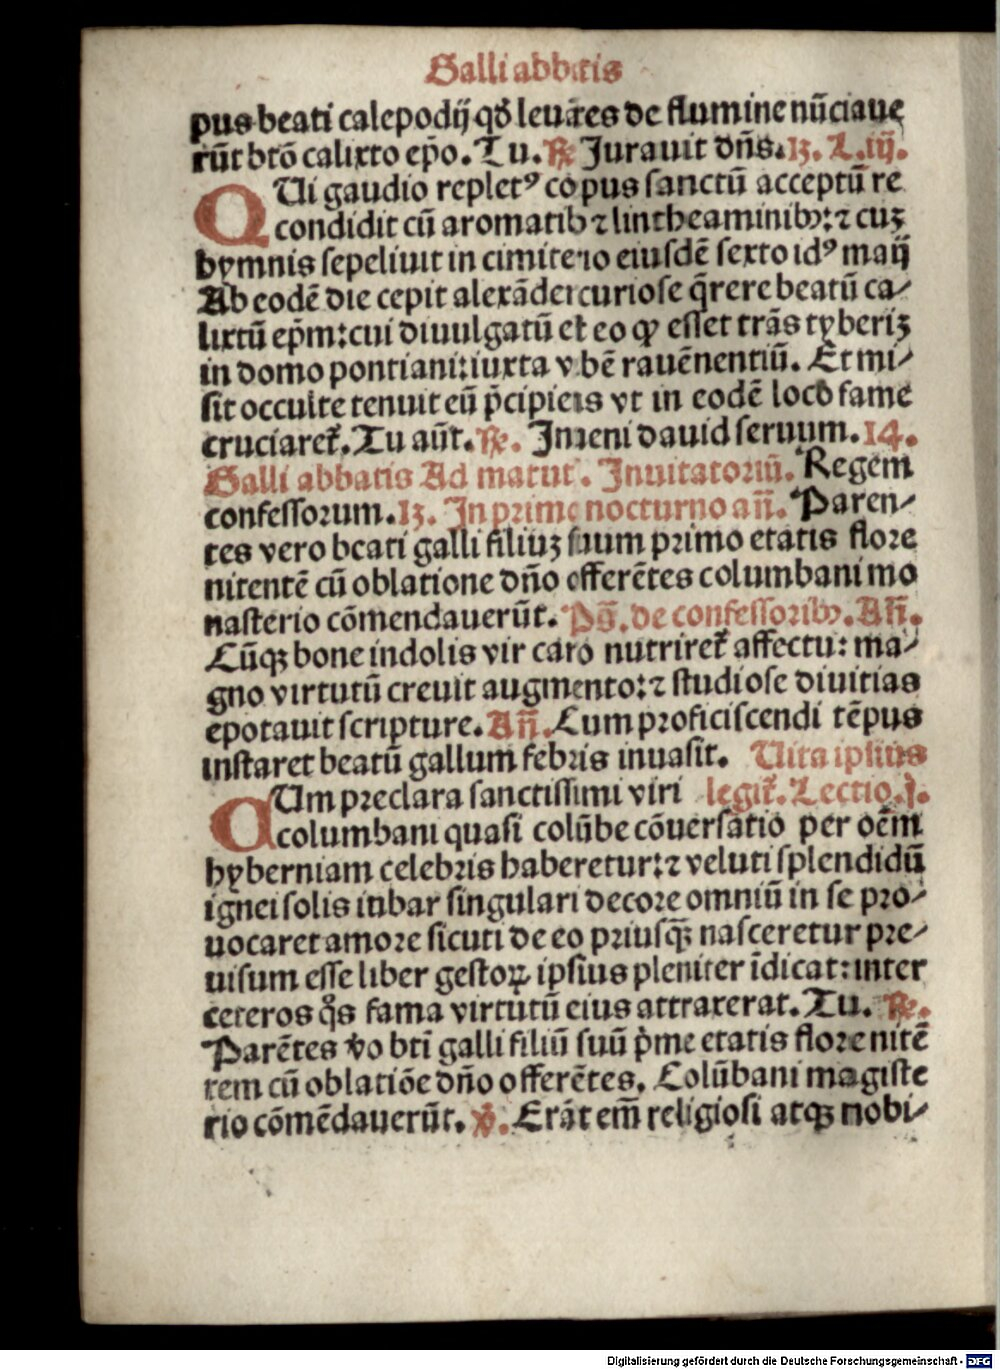 Galli abbatis
pus beati calepodij qđ leuãtes de flumine nũciaue
rũt btõ calixto ep̃o. Tu. ℟ Jurauit dñs. 13. L. iij.
QUi gaudio replet⁹ copus sanctũ acceptũ re
condidit cũ aromatib ⁊ lintheaminibꝫ: ⁊ cuꝫ
hymnis sepeliuit in cimiterio eiusdẽ sexto id⁹ maij
Ab eodẽ die cepit alexãder curiose q̃rere beatũ ca-
lixtũ ep̃m: cui diuulgatũ est eo ꝙ esset trãs tyberiꝫ
in domo pontiani: iuxta vrbẽ rauẽnentiũ. Et mi-
sit occulte tenuit eũ p̃cipiens vt in eodẽ loco fame
cruciaret̃. Tu aũt. ℟. Jnueni dauid seruum. 14.
Galli abbatis Ad matut̃. Jnuitatoriũ. Regem
confessorum. 13. Jn primo nocturno añ. Paren-
tes vero beati galli filiuꝫ suum primo etatis flore
nitentẽ cũ oblatione dño offerẽtes columbani mo
nasterio cõmendauerũt. Ps̃. de confessoribꝫ. Añ.
Cũqꝫ bone indolis vir caro nutriret̃ affectu: ma-
gno virtutũ creuit augmento: ⁊ studiose diuitias
epotauit scripture. Añ. Cum proficiscendi tẽpus
instaret beatũ gallum febris inuasit. Uita ipsius
CUm preclara sanctissimi viri legit̃. Lectio. j.
columbani quasi colũbe cõuersatio per oẽm
hyberniam celebris haberetur: ⁊ veluti splendidũ
ignei solis iubar singulari decore omniũ in se pro-
uocaret amore sicuti de eo priusqꝫ nasceretur pre-
uisum esse liber gestoꝝ ipsius pleniter ĩdicat: inter
ceteros q̊s fama virtutũ eius attraxerat. Tu. ℟.
Parẽtes v̾o bti̅ galli filiũ suũ p̃me etatis flore nitẽ
tem cũ oblatiõe dño offerẽtes. Colũbani magiste
rio cõmẽdauerũt. ℣. Erãt em̃ religiosi atqꝫ nobi-
Digitalisierung gefördert durch die Deutsche Forschungsgemeinschaft - DFG